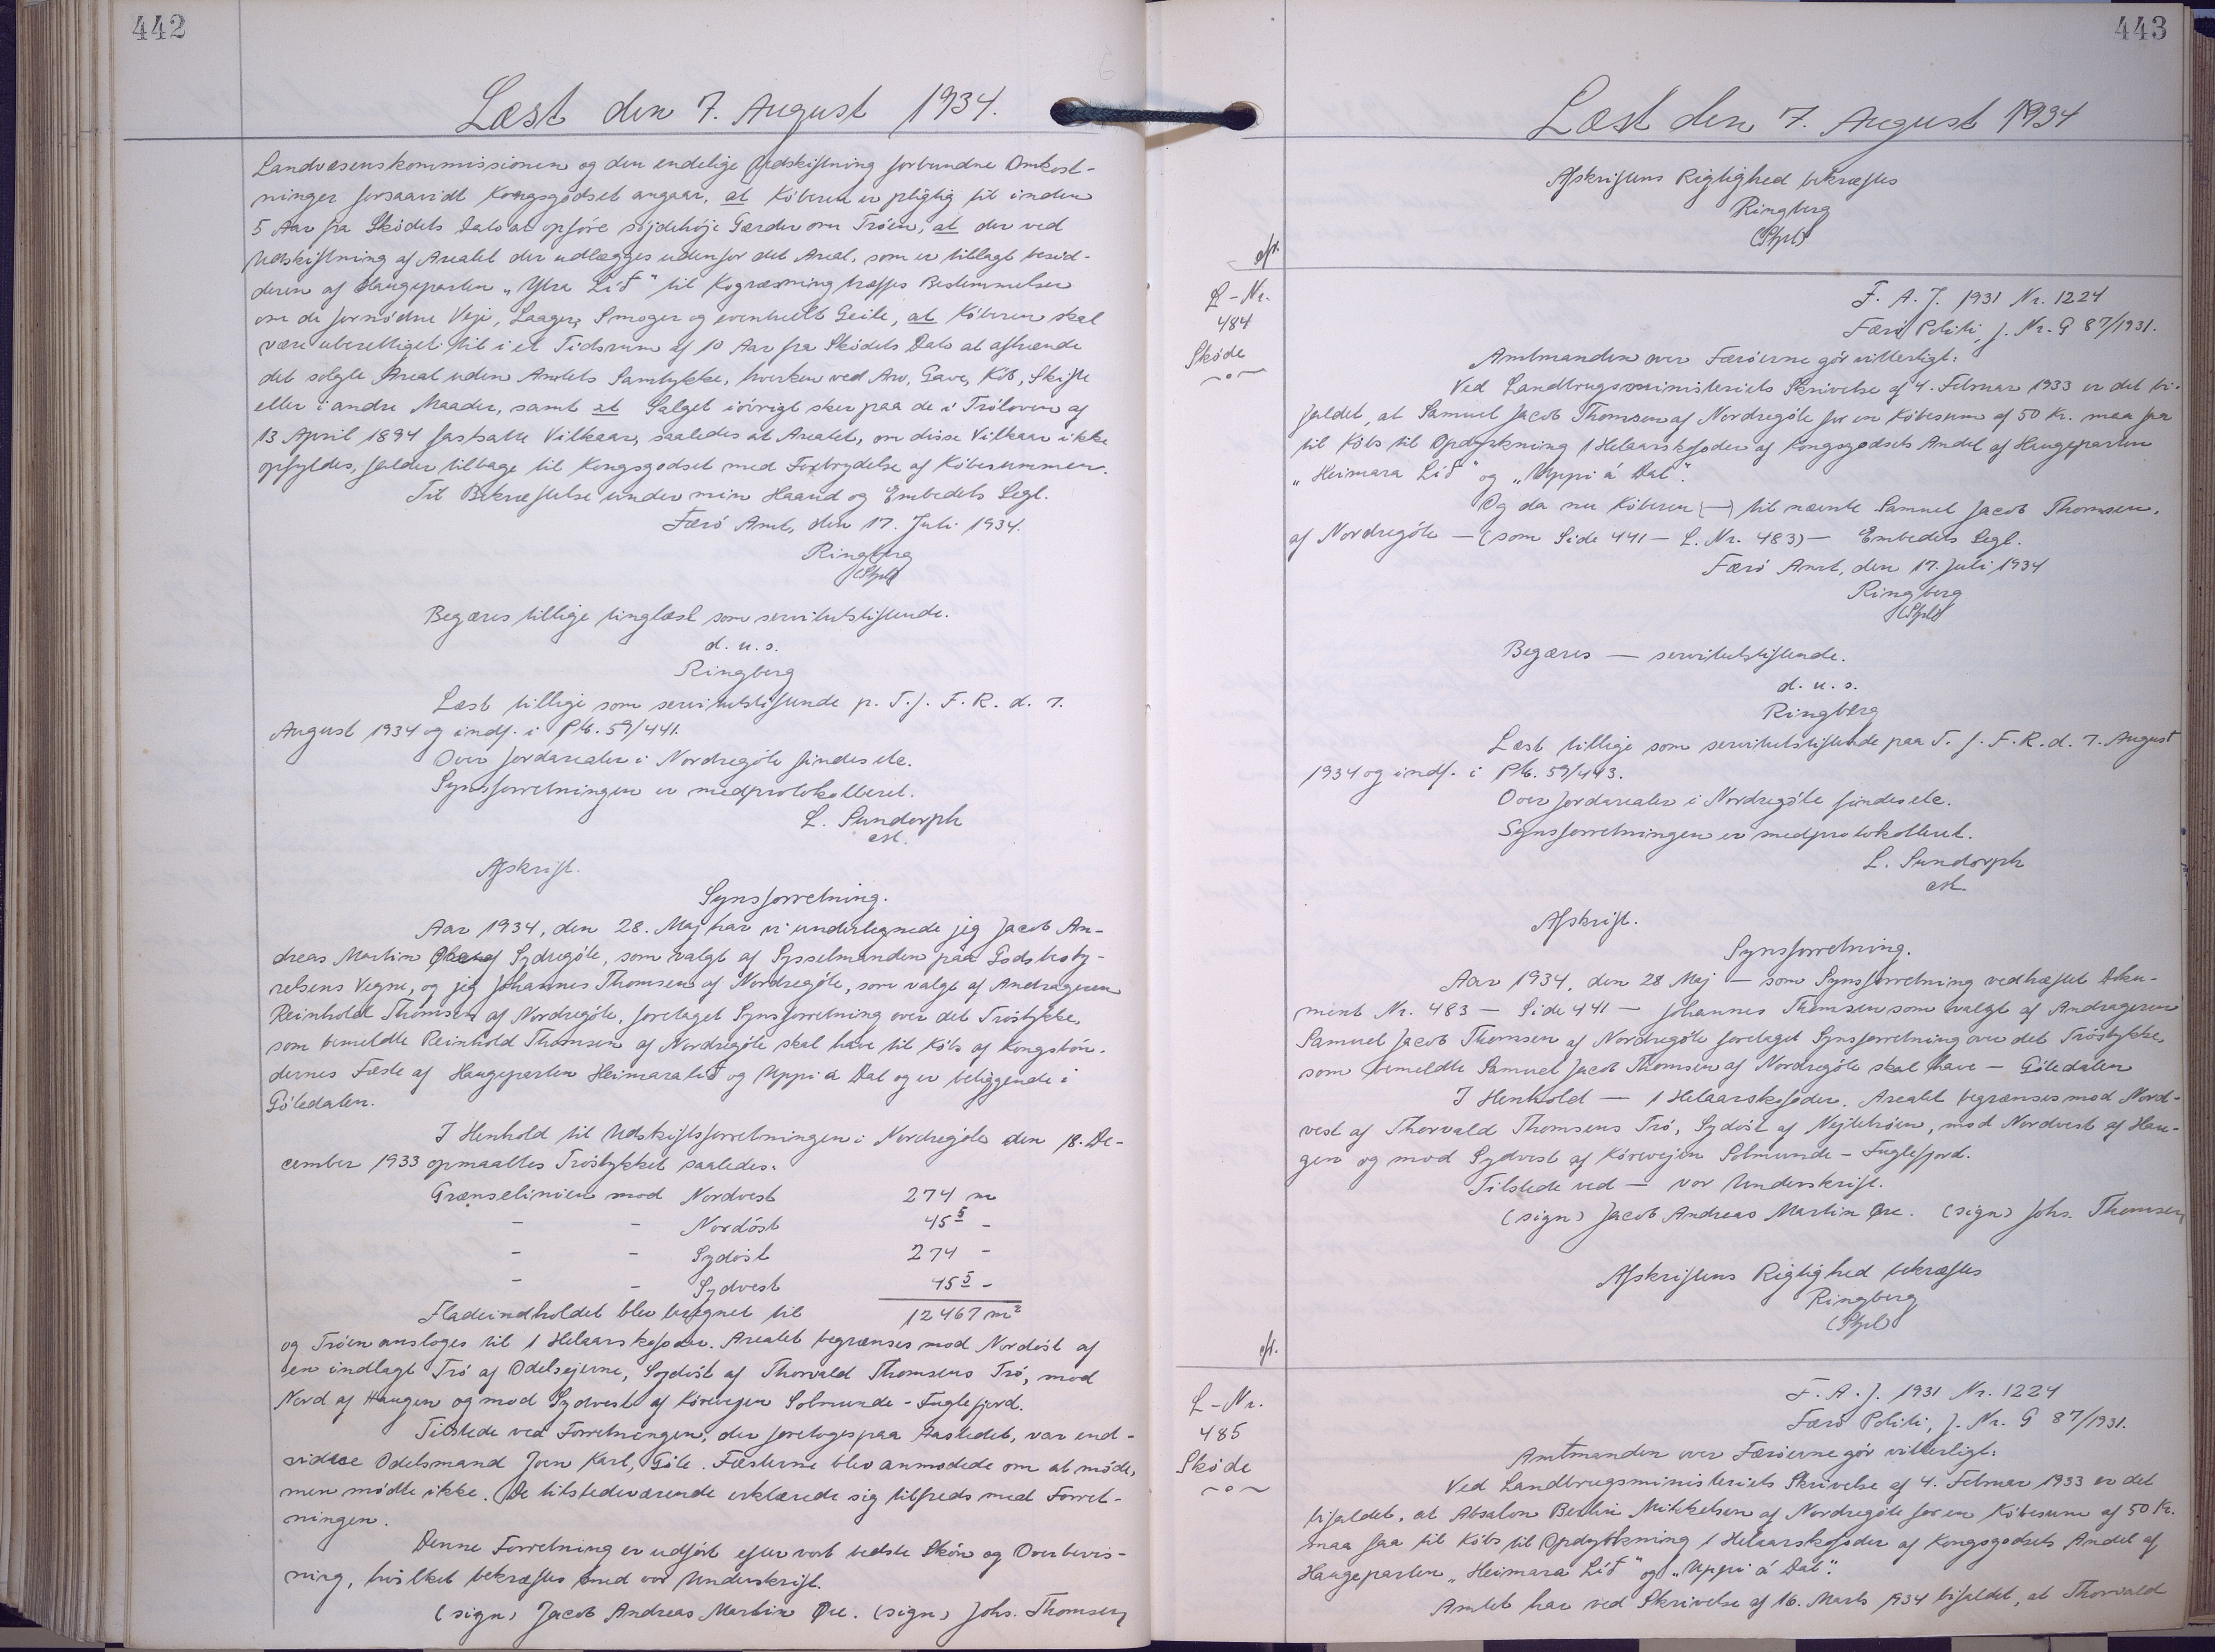 442
Læst den 7. August 1934.
Landvæsenskommissionen og den endelige Udskiftning forbundne Omkost-
ninger forsaavidt Kongsgodset angaar, at Köberen er pligtig til inden
5 Aar fra Sködets Dato at opföre söjdehöje Gærder om Tröen, at der ved
Udskiftning af Arealet der udlægges udenfor det Areal, som er tillagt besid-
deren af Haugeparten „Ytra Lið" til Kogræsning træffes Bestemmelser
om de fornödne Veje, Laager, Smoger og eventuelt Geile, at Köberen skal
være uberettiget til i et Tidsrum af 10 Aar fra Sködets Dato at afhænde
det solgte Areal uden Amtets Samtykke, hverken ved Arv, Gave, Köb, Skifte
eller i andre Maader, samt at Salget iövrigt sker paa de i Tröloven af
13 April 1894 fastsatte Vilkaar, saaledes at Arealet, om disse Vilkaar ikke
opfyldes, falder tilbage til Kongsgodset med Fortrydelse af Köbesummen.
Til Bekræftelse under min Haand og Embedets Segl.
Færö Amt, den 17. Juli 1934.
Ringberg
(Stpl)
Begæres tillige tinglæst som servitutstiftende.
d. u. s.
Ringberg
Læst tillige som servitutstiftende p. T. f. F. R. d. 7.
August 1934 og indf. i Ptk. 59/441.
Over Jordarealer i Nordregöte findes ele.
Synsforretningen er medprotokolleret.
L. Sundorph
cst.
Afskrift.
Synsforretning.
Aar 1934, den 28. Maj har vi undertegnede jeg Jacob An-
dreas Martin Øre af Sydregöte, som valgt af Sysselmanden paa Godsbesty-
relsens Vegne, og jeg Johannes Thomsen af Nordregöte, som valgt af Andrageren
Reinhold Thomsen af Nordregöte, foretaget Synsforretning over det Tröstykke,
som bemeldte Reinhold Thomsen af Nordregöte skal have til Köbs af Kongsbön-
dernes Fæste af Haugeparten Heimaralið og Uppi á Dal og er beliggende i
Götedalen.
I Henhold til Udskiftsforretningen i Nordregöte den 18. De-
cember 1933 opmaaltes Tröstykket saaledes:
Grænselinien mod Nordvest 274 m
- - Nordöst 45 5 -
- - Sydöst 274 -
- - Sydvest 45 5 -
Fladeindholdet blev beregnet til 12467 m²
og Tröen ansloges til 1 Helaarskofoder. Arealet begrænses mod Nordöst af
en indlagt Trö af Odelsejerne, Sydöst af Thorvald Thomsens Trö, mod
Nord af Haugen og mod Sydvest af Körevejen Solmunde - Fuglefjord.
Tilstede ved Forretningen, der foretoges paa Aastedet, var end-
videre Odelsmand Joen Karl, Göte. Fæsterne blev anmodede om at möde,
men mödte ikke. De tilstedeværende erklærede sig tilfreds med Forret-
ningen.
Denne Forretning er udfört efter vort bedste Skön og Overbevis-
ning, hvilket bekræftes med vor Underskrift.
(sign) Jacob Andreas Martin Øre. (sign) Johs. Thomsen
443
Læst den 7. August 1934
Afskriftens Rigtighed bekræftes
Ringberg
(Stpl)
L-Nr.
484
Sköde
F. A. J. 1931 Nr. 1224
Færö Politi, J. Nr. G 87/1931.
Amtmanden over Færöerne gör vitterligt:
Ved Landbrugsministeriets Skrivelse af 4. Februar 1933 er det bi-
faldet, at Samuel Jacob Thomsen af Nordregöte for en Köbesum af 50 Kr. maa faa
til Köbs til Opdyrkning 1 Helaarskofoder af Kongsgodsets Andel af Haugeparten
„Heimara Lið" og „Uppi á Dal".
Og da nu Köberen (—) til nævnte Samuel Jacob Thomsen,
af Nordregöte — (som Side 441 — L. Nr. 483) — Embedets Segl.
Færö Amt, den 17. Juli 1934
Ringberg
(Stpl)
Begæres — servitutstiftende.
d. u. s.
Ringberg
Læst tillige som servitutstiftende paa T. f. F. R. d. 7. August
1934 og indf. i Ptk. 59/443.
Over Jordarealer i Nordregöte findes ele.
Synsforretningen er medprotokolleret.
L. Sundorph
cst.
Afskrift.
Synsforretning.
Aar 1934, den 28 Maj — som Synsforretning vedhæftet Doku-
ment Nr. 483 — Side 441 — Johannes Thomsen som valgt af Andrageren
Samuel Jacob Thomsen af Nordregöte foretaget Synsforretning over det Tröstykke,
som bemeldte Samuel Jacob Thomsen af Nordregöte skal have — Götedalen
I Henhold — 1 Helaarskofoder. Arealet begrænses mod Nord-
vest af Thorvald Thomsens Trö, Sydöst af Vejtetröen, mod Nordvest af Hau-
gen og mod Sydvest af Körevejen Solmunde - Fuglefjord.
Tilstede ved — vor Underskrift.
(sign) Jacob Andreas Martin Øre. (sign) Johs. Thomsen
Afskriftens Rigtighed bekræftes
Ringberg
(Stpl)
L-Nr.
485
Sköde
F. A. J. 1931 Nr. 1224
Færö Politi, J. Nr. G 87/1931.
Amtmanden over Færöerne gör vitterligt:
Ved Landbrugsministeriets Skrivelse af 4. Februar 1933 er det
bifaldet, at Absalon Berlin Mikkelsen af Nordregöte for en Köbesum af 50 Kr.
maa faa til Köbs til Opdyrkning 1 Helaarskofoder af Kongsgodsets Andel af
Haugeparten „Heimara Lið" og „Uppi á Dal".
Amtet har ved Skrivelse af 16. Marts 1934 bifaldet, at Thorvald